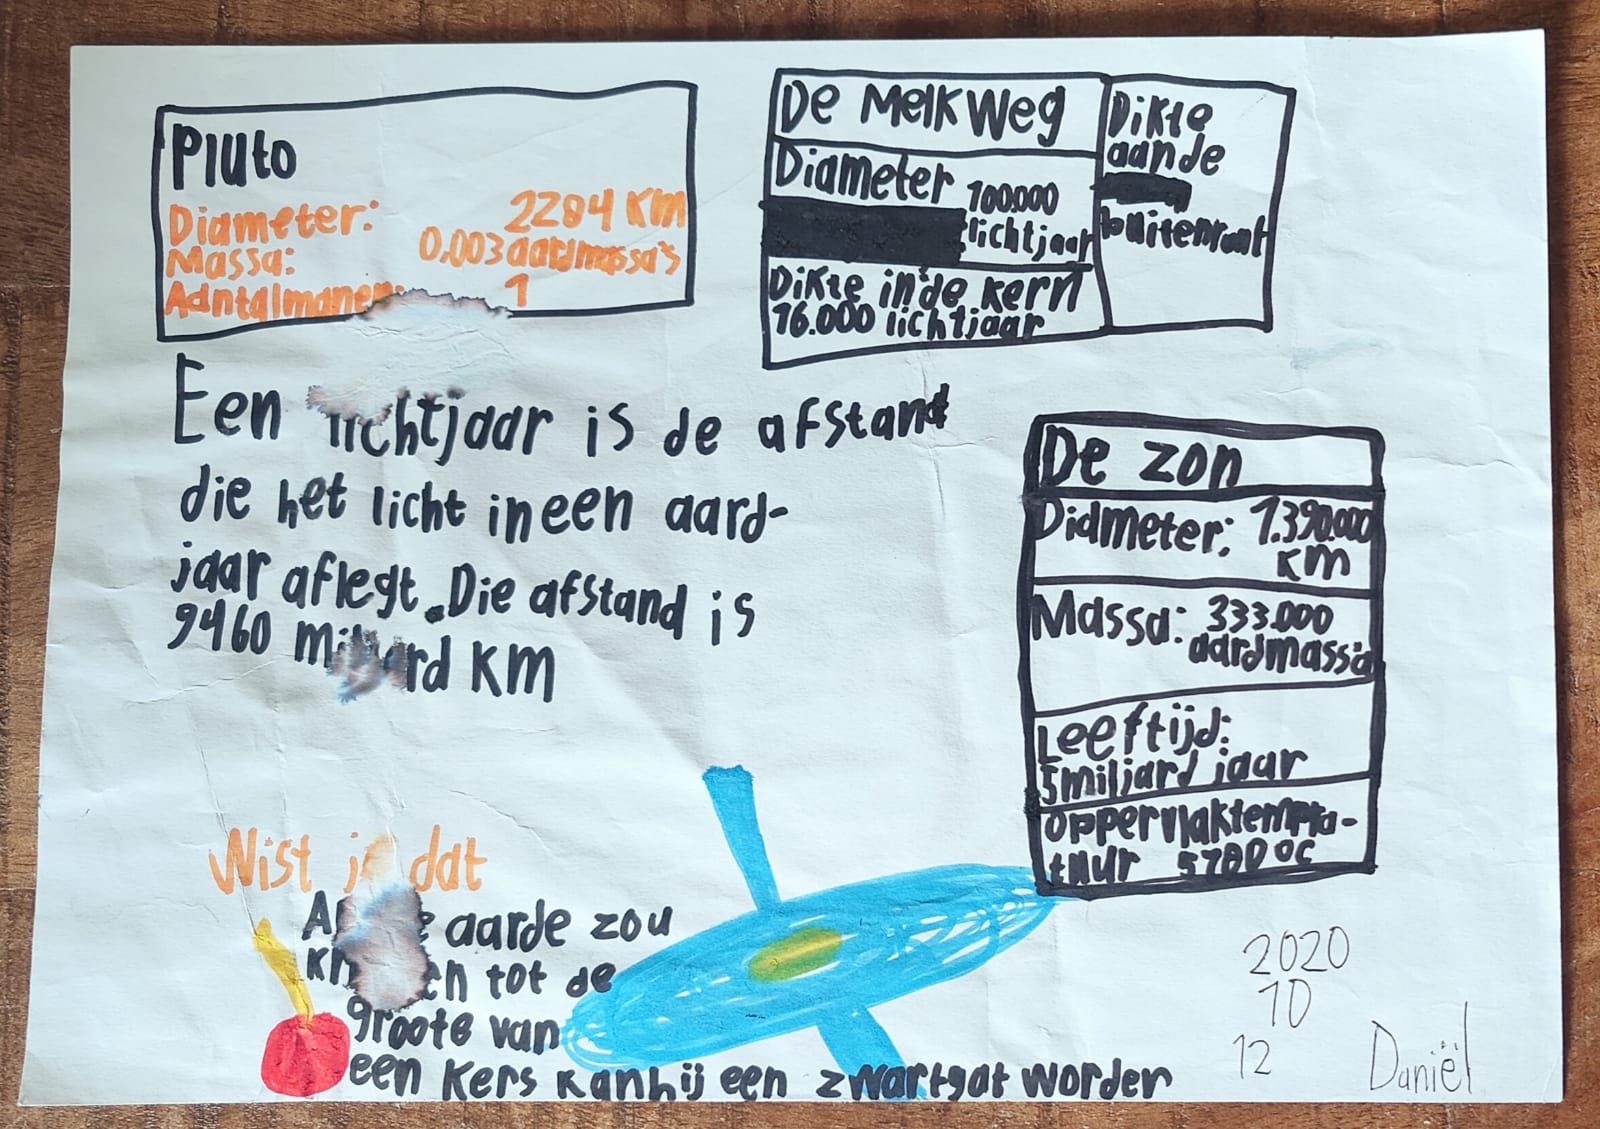 Pluto
Diameter: 2284 KM
Massa: 0,003 aardmassa's
Aantalmanen: 1
De Melkweg
Diameter 100.000
lichtjaar
Dikte in de kern
16.000 lichtjaar
Dikte
aan de
buitenrant
Een lichtjaar is de afstand
die het licht in een aard-
jaar aflegt. Die afstand is
9460 miljard KM
De zon
Diameter: 1.390.000
KM
Massa: 333.000
aardmassa
Leeftijd:
5 miljard jaar
oppervlaktempra-
tuur 5700 °C
Wist je dat
aarde zou
tot de
groote van
een kers kan hij een zwartgat worder
2020
10
12
Daniël